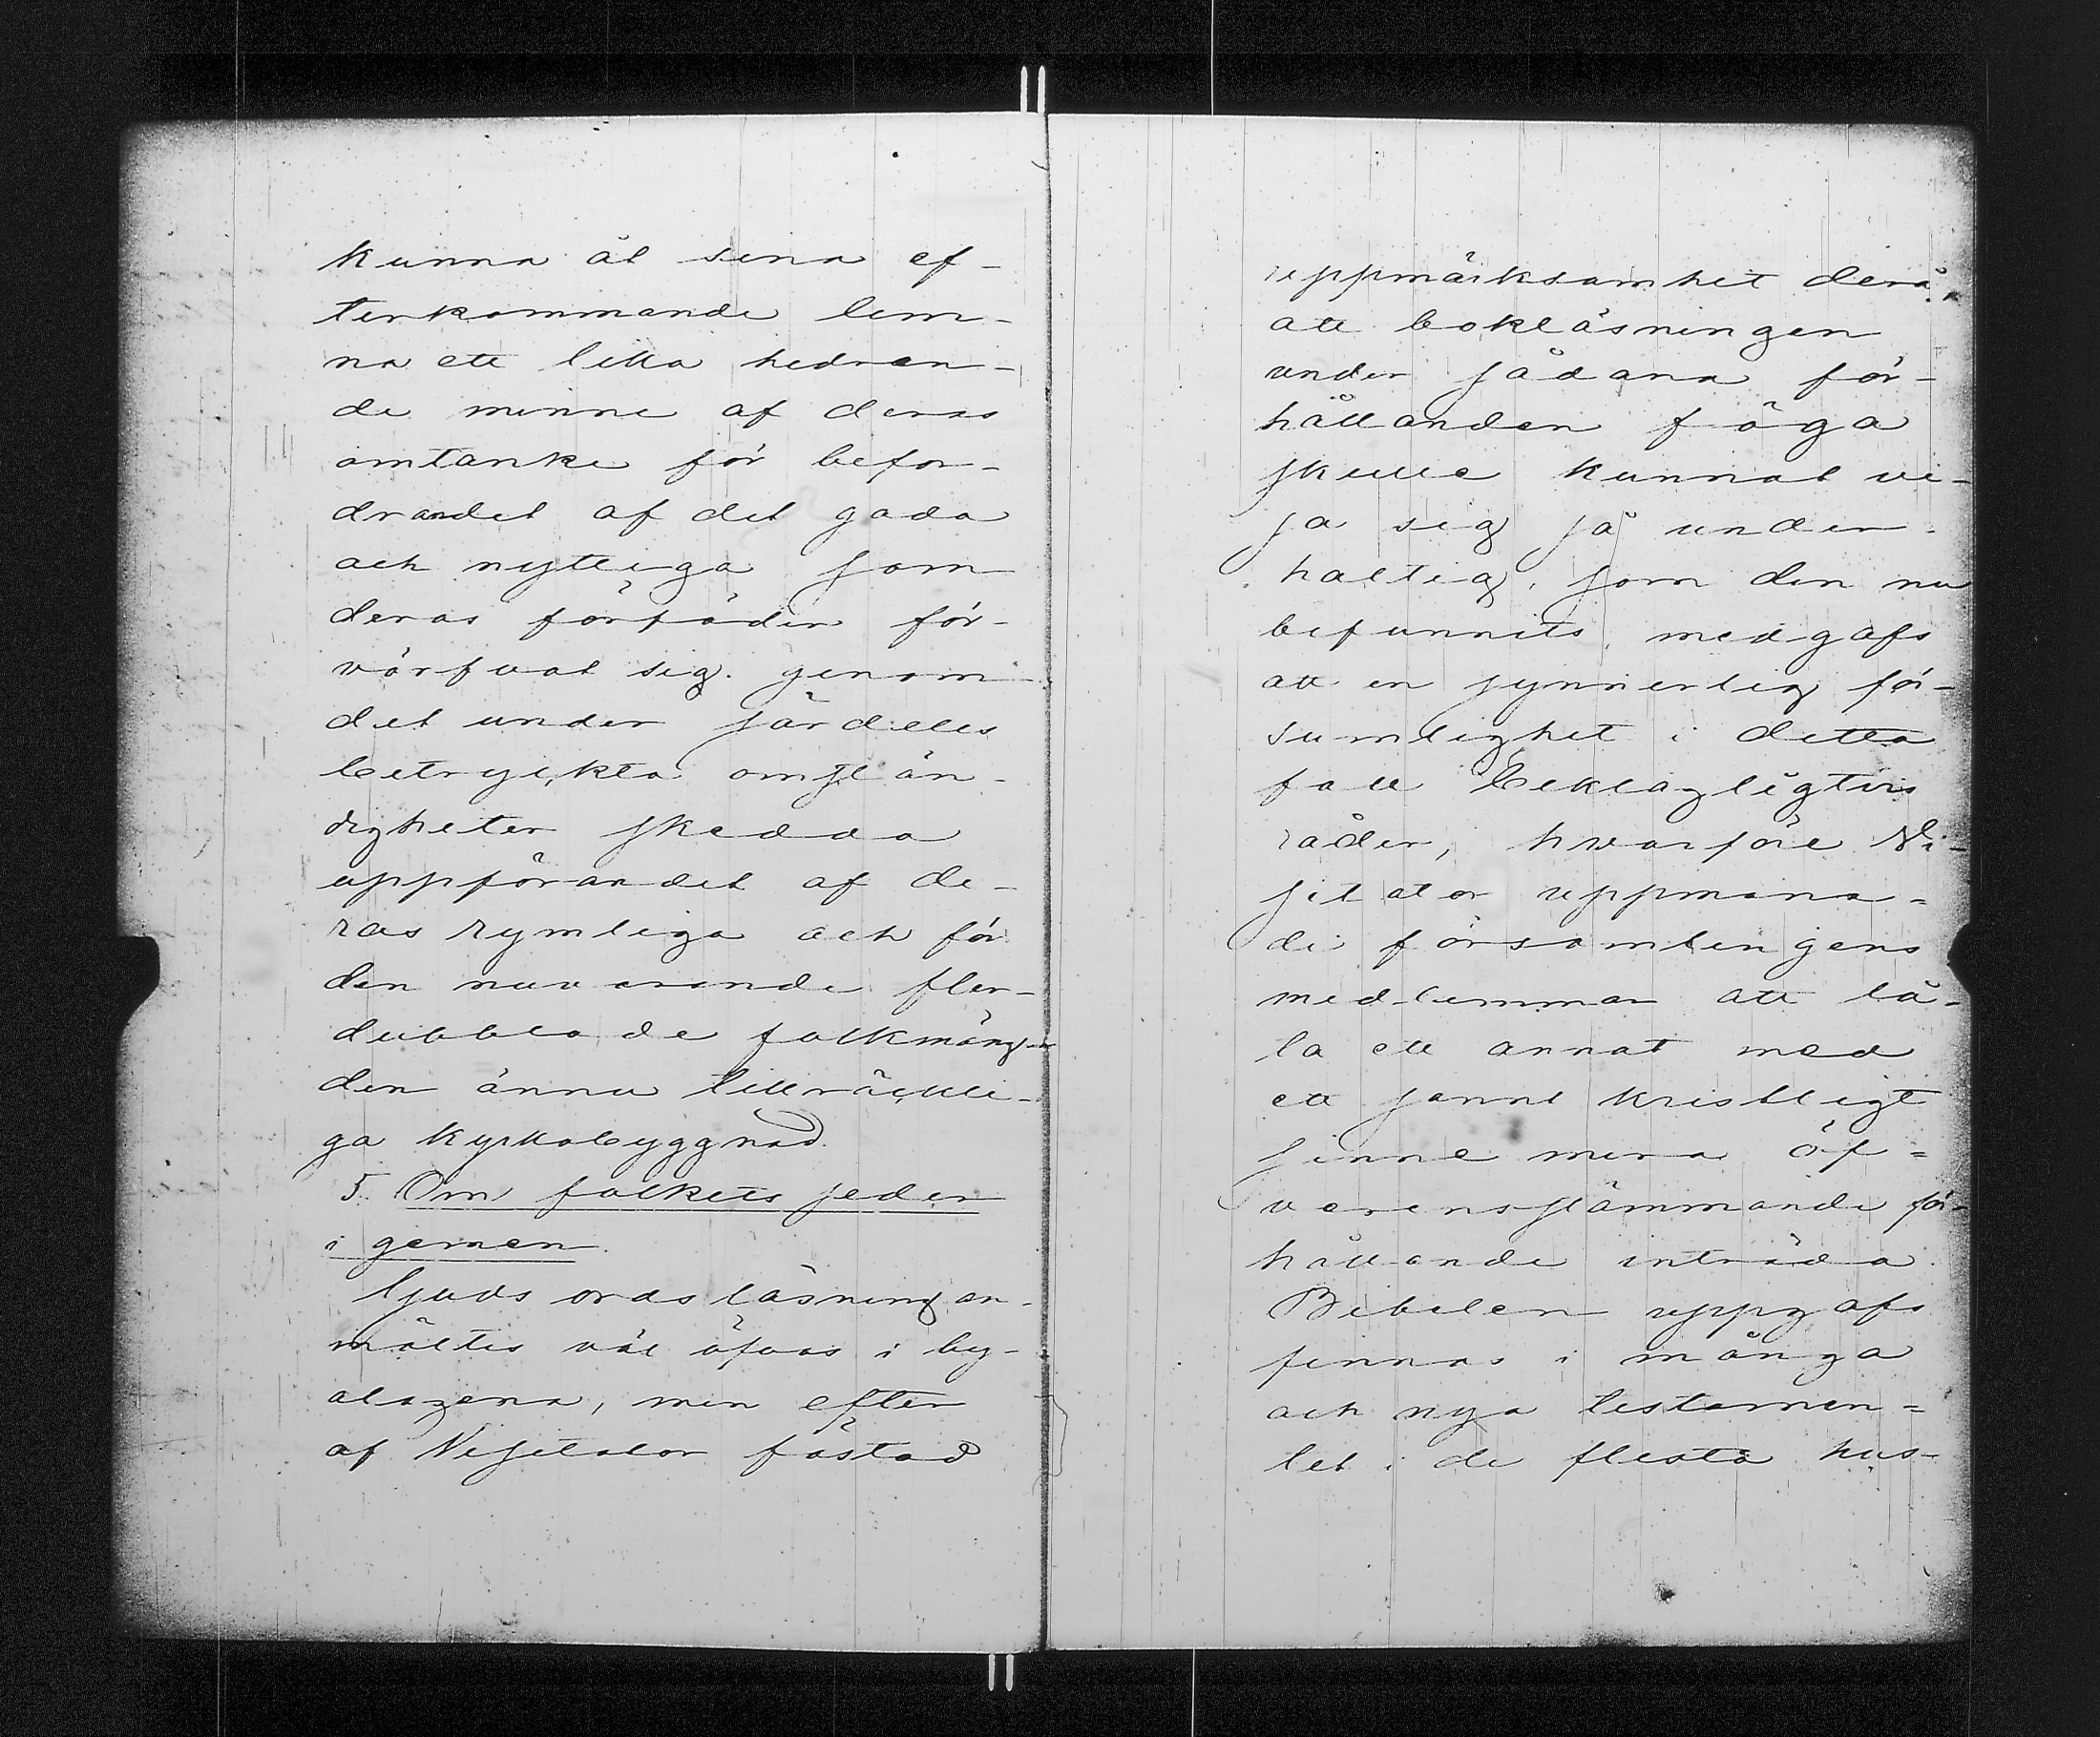 kunna åt sina ef-
terkommande lem-
na ett lika hedran-
de minne af deras
omtanke för befor-
drandet af det goda
och nyttiga som
deras förfäder för-
värfvat sig genom
det under särdeles
betryckta omstän-
digheter skedda
uppförandet af de-
ras rymliga och för
den nuvarande fler-
dubblade folkmäng-
den ännu tillräckli-
ga kyrkobyggnad.
5. Om folkets seder
i gemen.
Guds ords läsning an-
mältes väl öfvas i by-
alagena, men efter
af Visitator fästad
uppmärksamhet derå,
att bokläsningen
under sådana för-
hållanden föga
skulle kunnat vi-
sa sig så under-
haltig, som den nu
befunnits, medgafs
att en synnerlig för-
sumlighet i detta
fall beklagligtvis
råder, hvarföre Vi-
sitator uppmana-
de församlingens
medlemmar att lå-
ta ett annat med
ett sannt kristligt
sinne mera öf-
verensstämmande för-
hållande inträda.
Bibelen uppgafs
finnas i många
och nya testamen-
tet i de flesta hus-